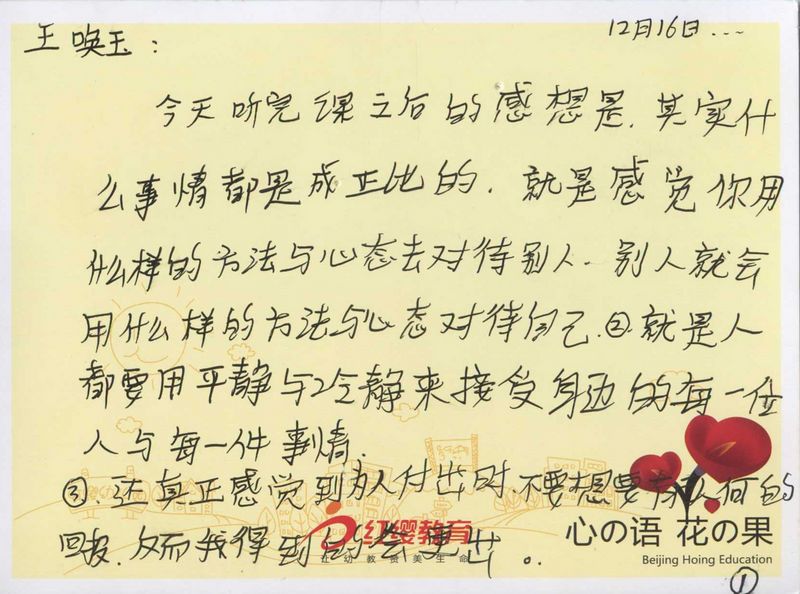 王唤玉：
12月16日...
今天听完课之后的感想是，其实什
么事情都是成正比的，就是感觉你用
什么样的方法与心态去对待别人，别人就会
用什么样的方法与心态对待自己。②就是人
都要用平静与冷静来接受身边的每一位
人与每一件事情。
③.还真正感觉到为人付出时，不要想要有任何的
回报，反而我得到的会更出。
红缨教育
红幼教贵美生命
心の语 花の果
Beijing Hoing Education
①